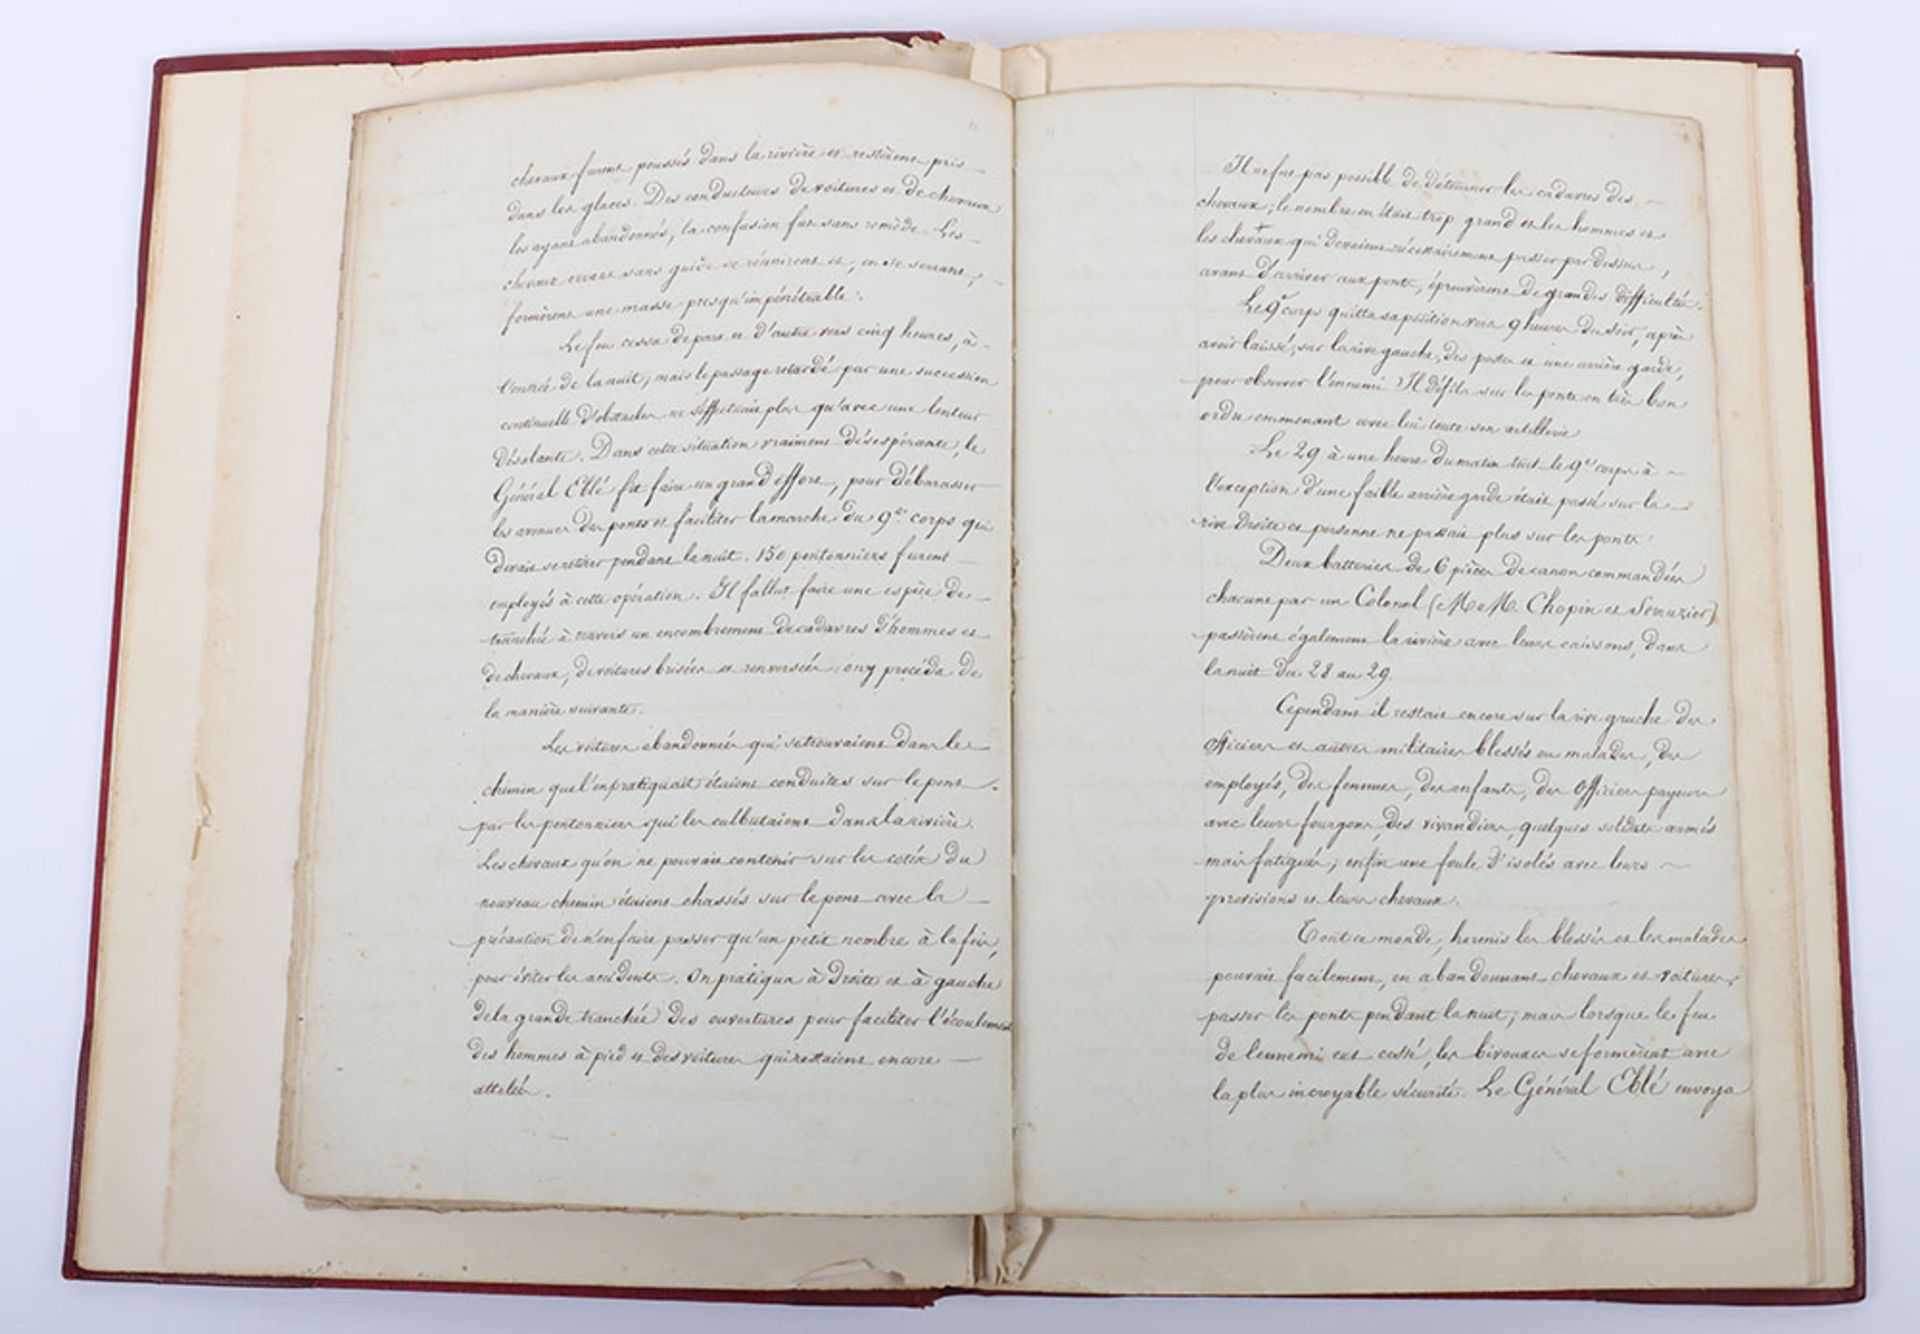 chevaux furent poussés dans la rivière et restèrent pris
dans les glaces. Des conducteurs de voitures et de chevaux
les ayant abandonnés, la confusion fut sans remède. Les
chevaux errans sans guide se réunirent et, en se serrant,
formèrent une masse presqu'impénétrable.
Le feu cessa de part et d'autre vers cinq heures, à
l'entrée de la nuit, mais le passage retardé par une succession
continuelle d'obstacles ne s'effectuait plus qu'avec une lenteur
désolante. Dans cette situation vraiment désespérante, le
Général Eblé fit faire un grand effort, pour débarasser
les avenues des ponts et faciliter la marche du 9e corps qui
devait se retirer pendant la nuit. 150 pontonniers furent
employés à cette opération. Il fallut faire une espèce de
tranchée à travers un encombrement de cadavres d'hommes et
de chevaux, de voitures brisées et renversées; on y procéda de
la manière suivante.
Les voitures abandonnées qui se trouvaient dans le
chemin que l'on pratiquait étaient conduites sur le pont
par les pontonniers qui les culbutaient dans la rivière.
Les chevaux qu'on ne pouvait contenir sur les cotés du
nouveau chemin étaient chassés sur le pont avec la
précaution de n'en faire passer qu'un petit nombre à la fois,
pour éviter les accidents. On pratiqua à droite et à gauche
de la grande tranchée des ouvertures pour faciliter l'écoulement
des hommes à pied et des voitures qui restaient encore
attelées.
11
Il ne fut pas possible de détourner les cadavres des
chevaux; le nombre en était trop grand et les hommes et
les chevaux qui devaient nécessairement passer par dessus,
avant d'arriver aux ponts, éprouvèrent de grandes difficultés.
Le 9e corps quitta sa position vers 9 heures du soir, après
avoir laissé, sur la rive gauche, des postes et une arrière garde,
pour observer l'ennemi. Il défila sur les ponts en très bon
ordre emmenant avec lui toute son artillerie
Le 29 à une heure du matin tout le 9e corps à
l'exception d'une faible arrière garde était passé sur la
rive droite et personne ne passait plus sur les ponts.
Deux batteries de 6 pièces de canon commandées
chacune par un Colonel (M. M. Chopin et Serruzier)
passèrent également la rivière avec leurs caissons, dans
la nuit du 28 au 29.
Cependant il restait encore sur la rive gauche des
officiers et autres militaires blessés ou malades, des
employés, des femmes, des enfants, des officiers payeurs
avec leurs fourgons, des vivandiers, quelques soldats armés
mais fatigués; enfin une foule d'isolés avec leurs
provisions et leurs chevaux.
Tout ce monde, hormis les blessés et les malades
pouvait facilement, en abandonnant chevaux et voitures,
passer les ponts pendant la nuit; mais lorsque le feu
de l'ennemi eut cessé, les bivouacs se formèrent avec
la plus incroyable sécurité. Le Général Eblé envoya